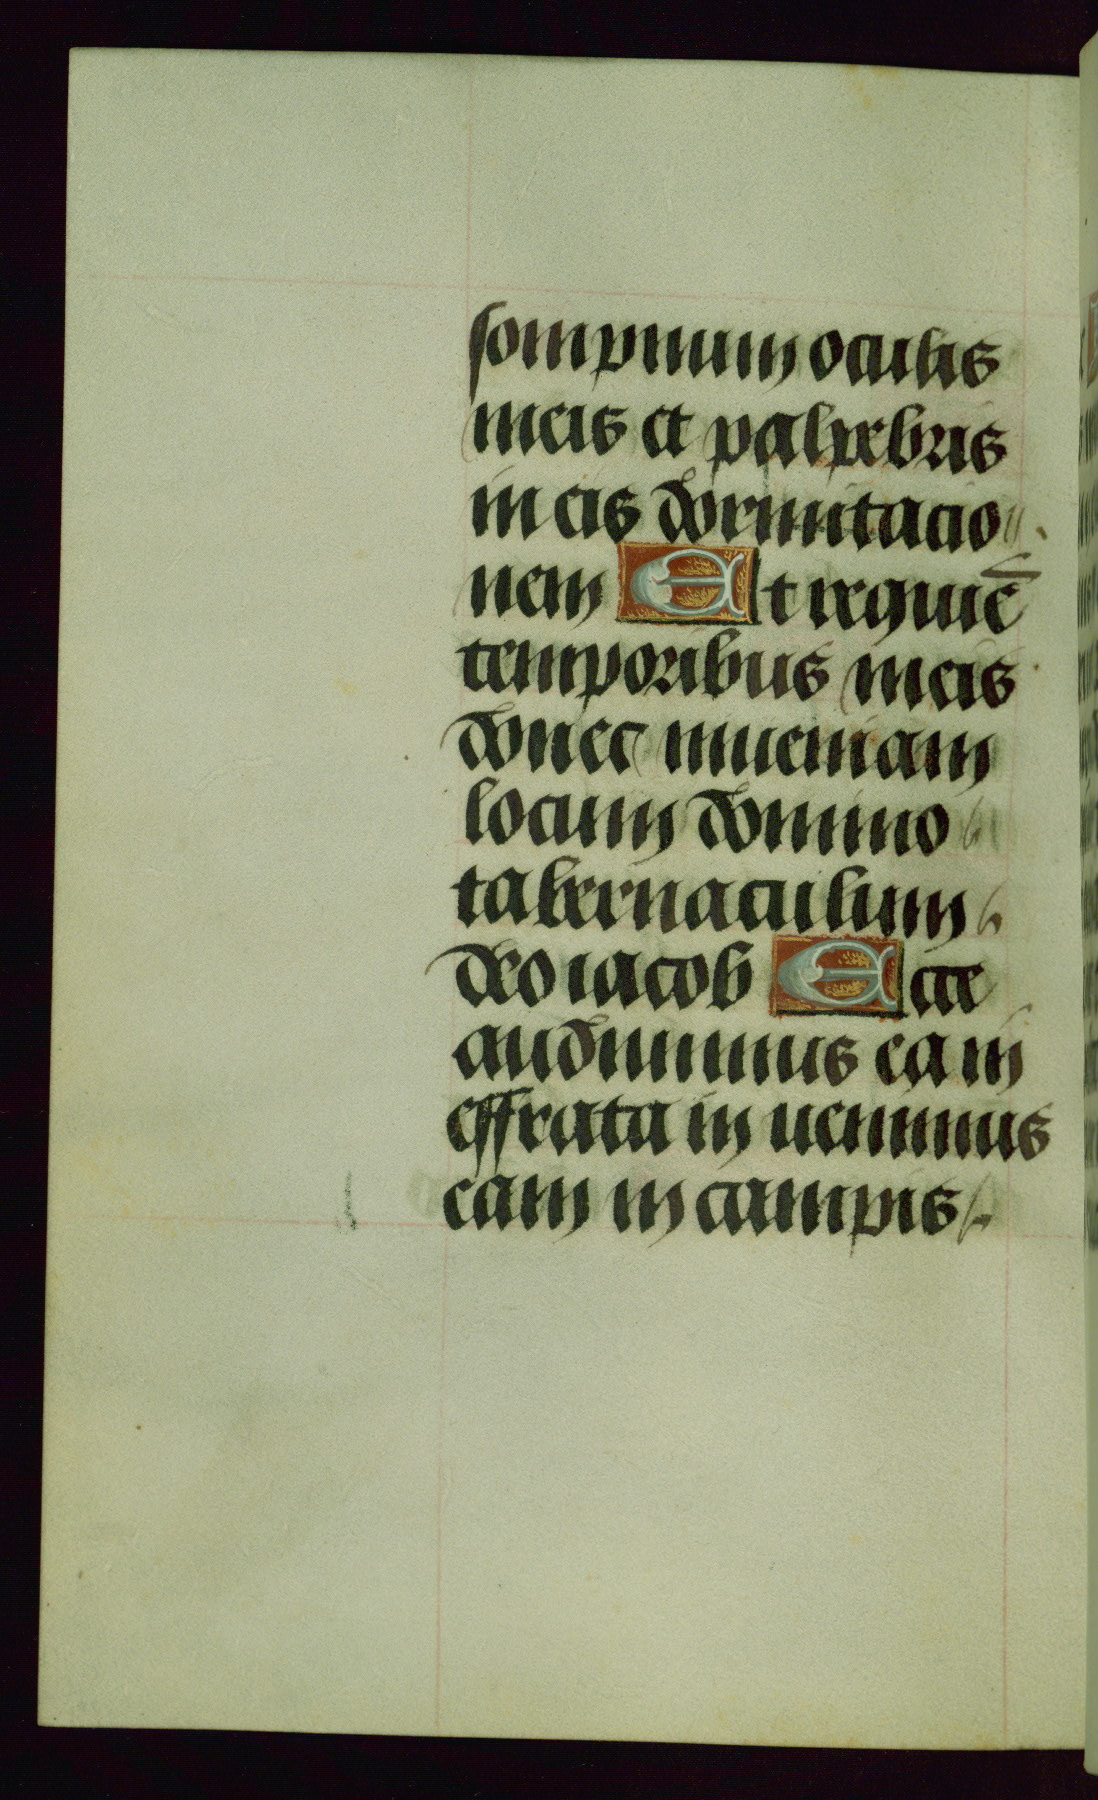 sompnium oculis
meis et palpebris
meis dormitacio
nem Et requiē
temporibus meis
donec inueniam
locum domino
tabernaculum
deo iacob Ecce
audiuimus ea in
effrata in uenimus
eam in campis